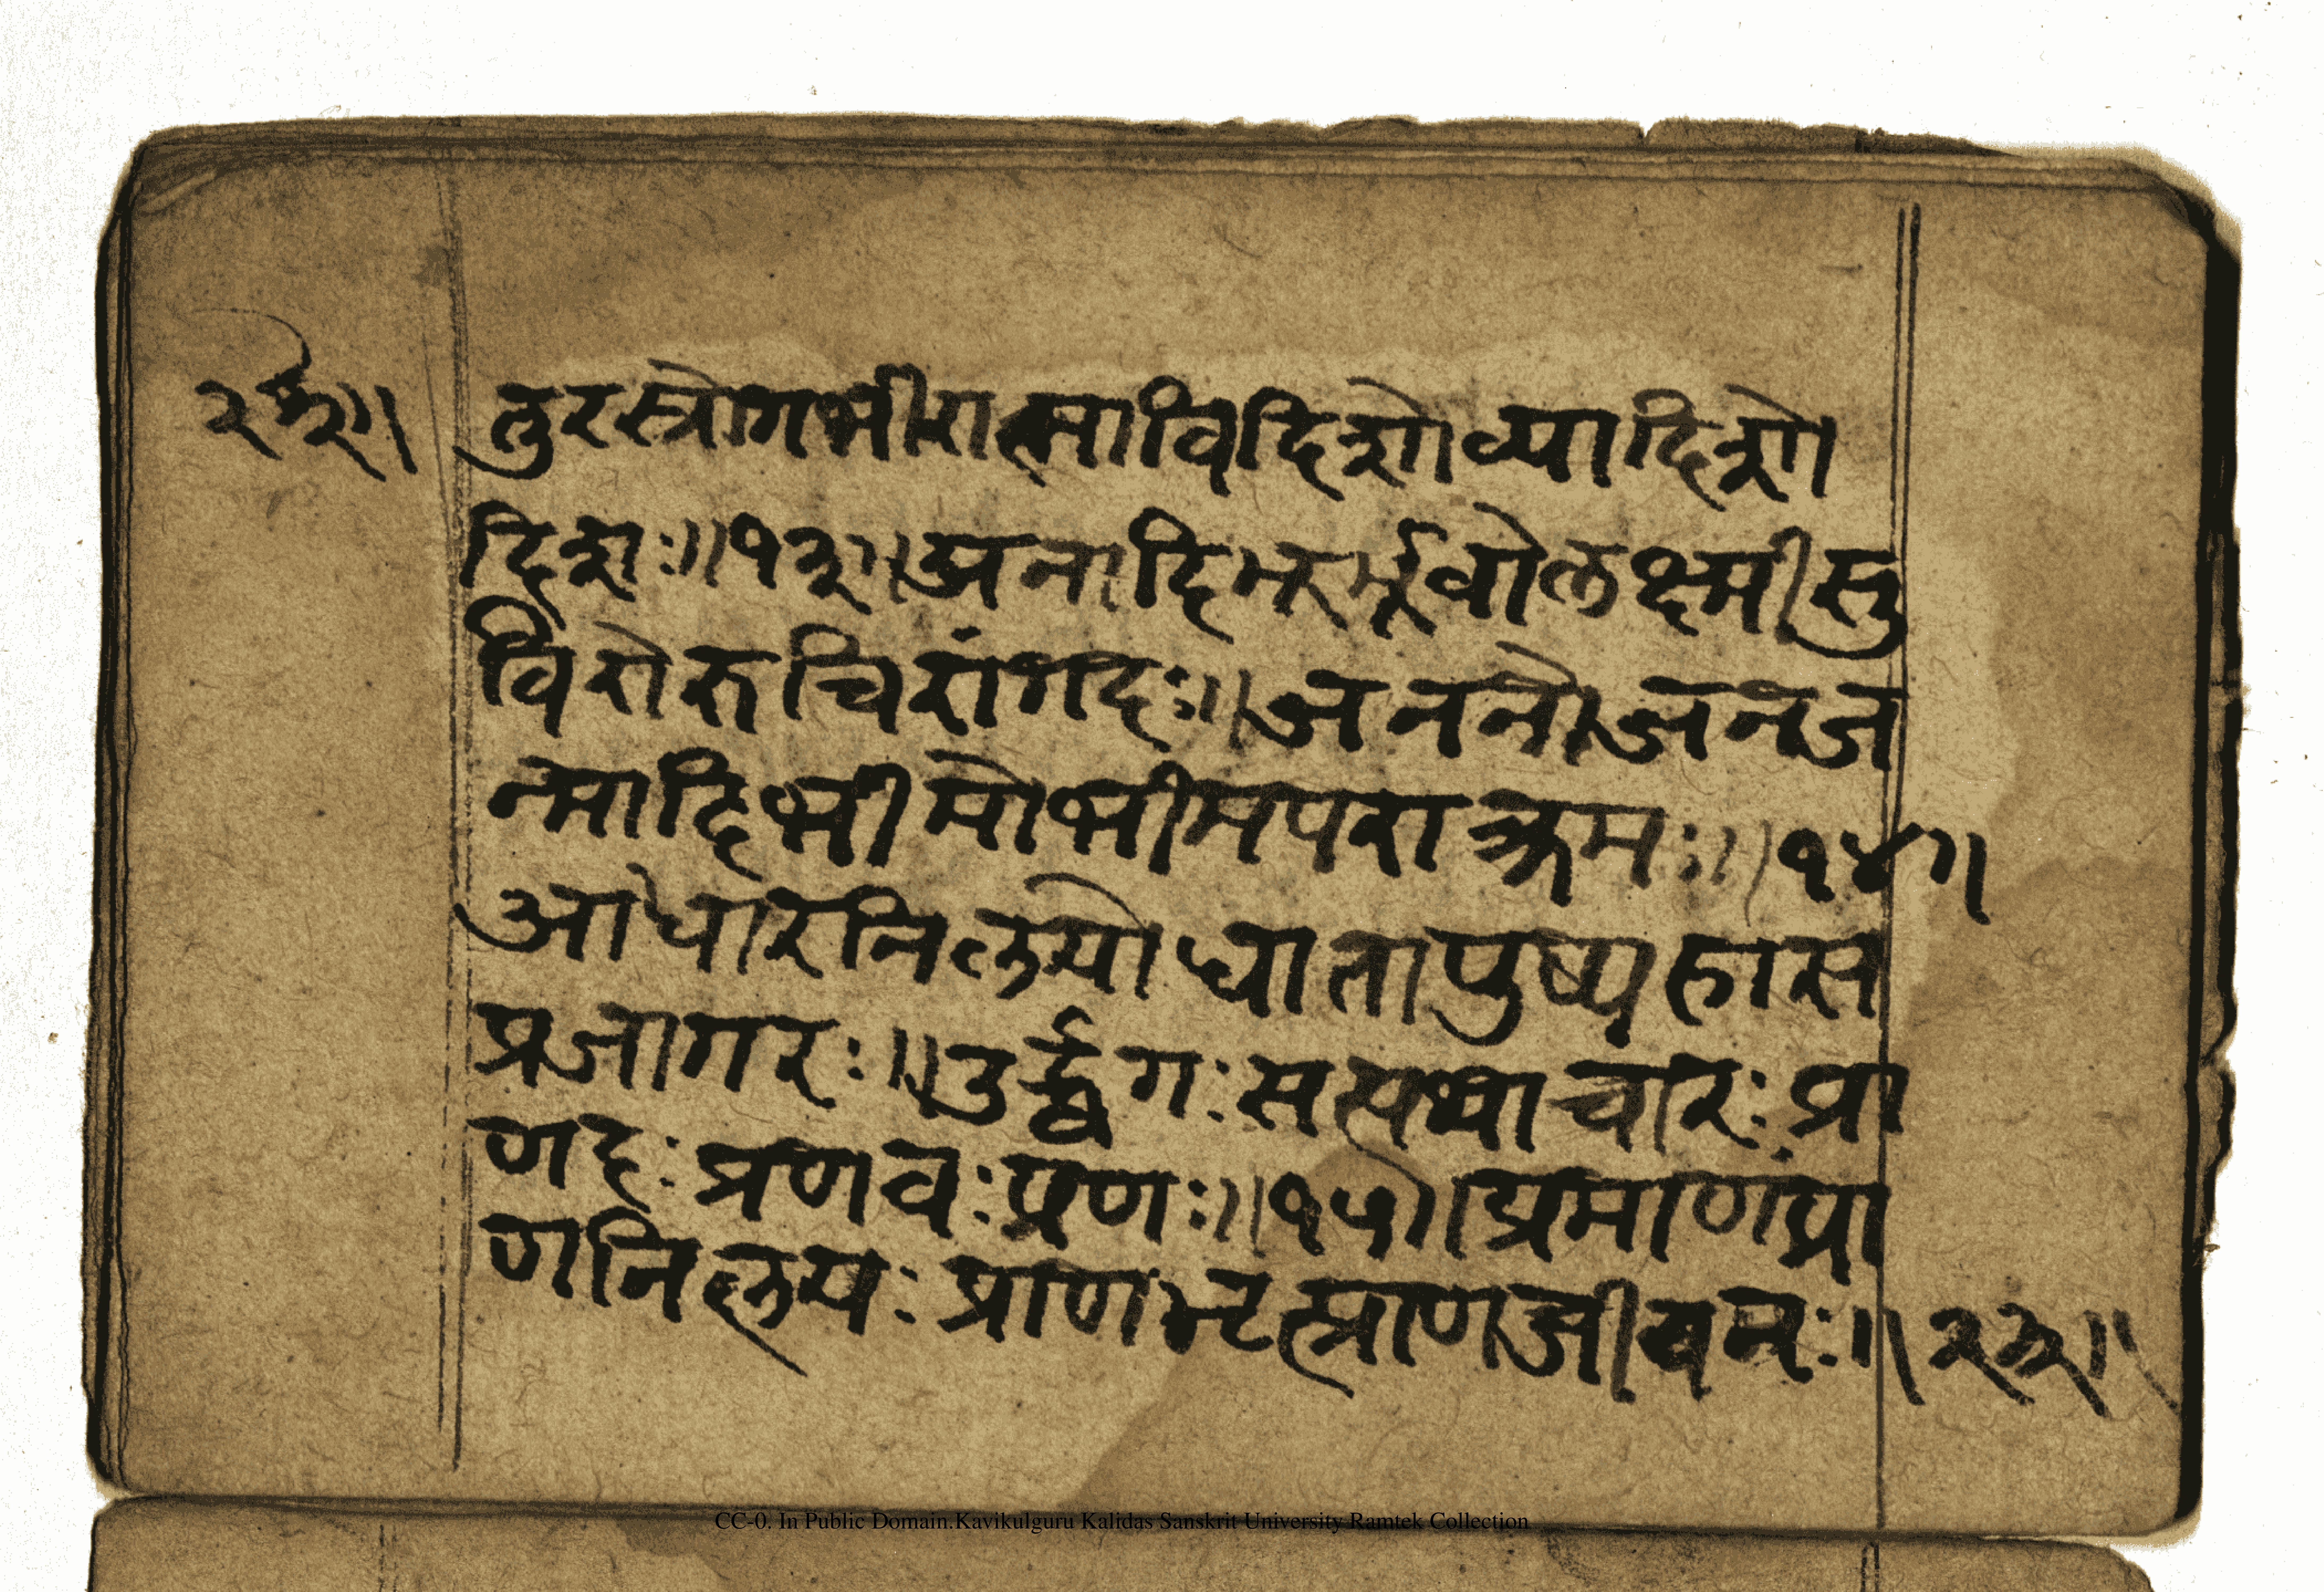 २३॥
तुरस्रोगभीरात्माविदिशोव्यादिशो
दिशः॥१३॥अनादिमरर्भूवोलक्ष्मीसु
विरोरुचिरांगदः॥जननोजनज
न्मादिभीमोभीमपराक्रमः॥१४॥
आधारनिलयोधातापुष्पहास
प्रजागरः॥उर्द्ध्वगःसत्पथाचारःप्रा
णदःप्रणवःप्रणः॥१५॥प्रमाणंप्रा
णनिलयःप्राणभृत्प्राणजीवनः॥
२३॥
CC-0. In Public Domain.Kavikulguru Kalidas Sanskrit University Ramtek Collection